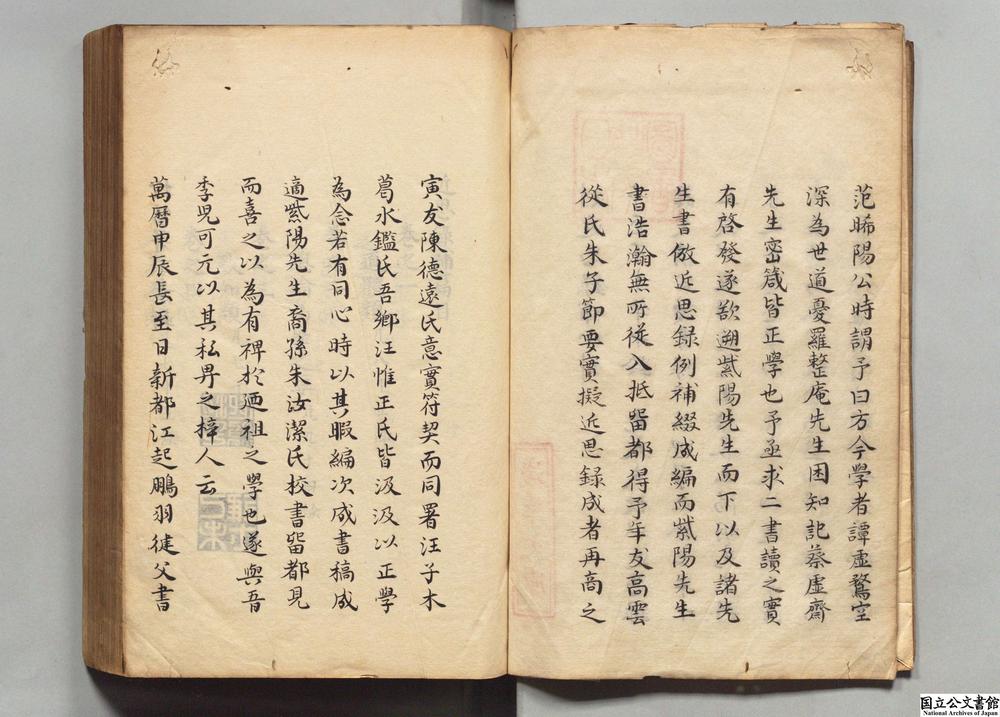 范晞陽公時謂予曰方今學者譚虛騖空
深為世道憂羅整庵先生困知記蔡虛齋
先生密箴皆正學也予亟求二書讀之實
有啓發遂欲遡紫陽先生而下以及諸先
生書倣近思錄例補綴成編而紫陽先生
書浩瀚無所從入抵留都得予年友高雲
從氏朱子節要實擬近思錄成者再商之
寅友陳德遠氏意實符契而同署汪子木
葛水鑑氏吾鄉汪惟正氏皆汲汲以正學
為念若有同心時以其暇編次成書稿成
適紫陽先生裔孫朱汝潔氏校書留都見
而喜之以為有裨於廼祖之學也遂與吾
季児可元以其私畀之梓人云
萬曆甲辰長至日新都江起鵬羽健父書
国立公文書館
National Archives of Japan